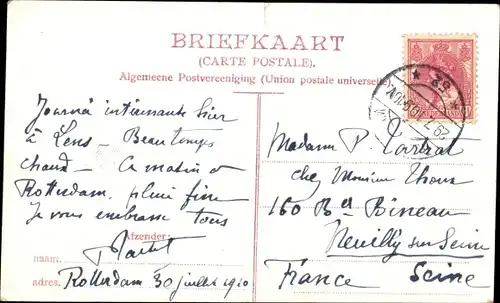 BRIEFKAART
(CARTE POSTALE).
Algemeene Postvereeniging (Union postale universelle)
Journée intéressante hier
à Lens – Beau temps
chaud – Ce matin à
Rotterdam, pluie fine
Je vous embrasse tous
Afzender:
naam:
adres: Rotterdam 30 juillet 1910
Madame P.
chez Monsieur Thoux
160 Bd Bineau
Neuilly sur Seine
France Seine